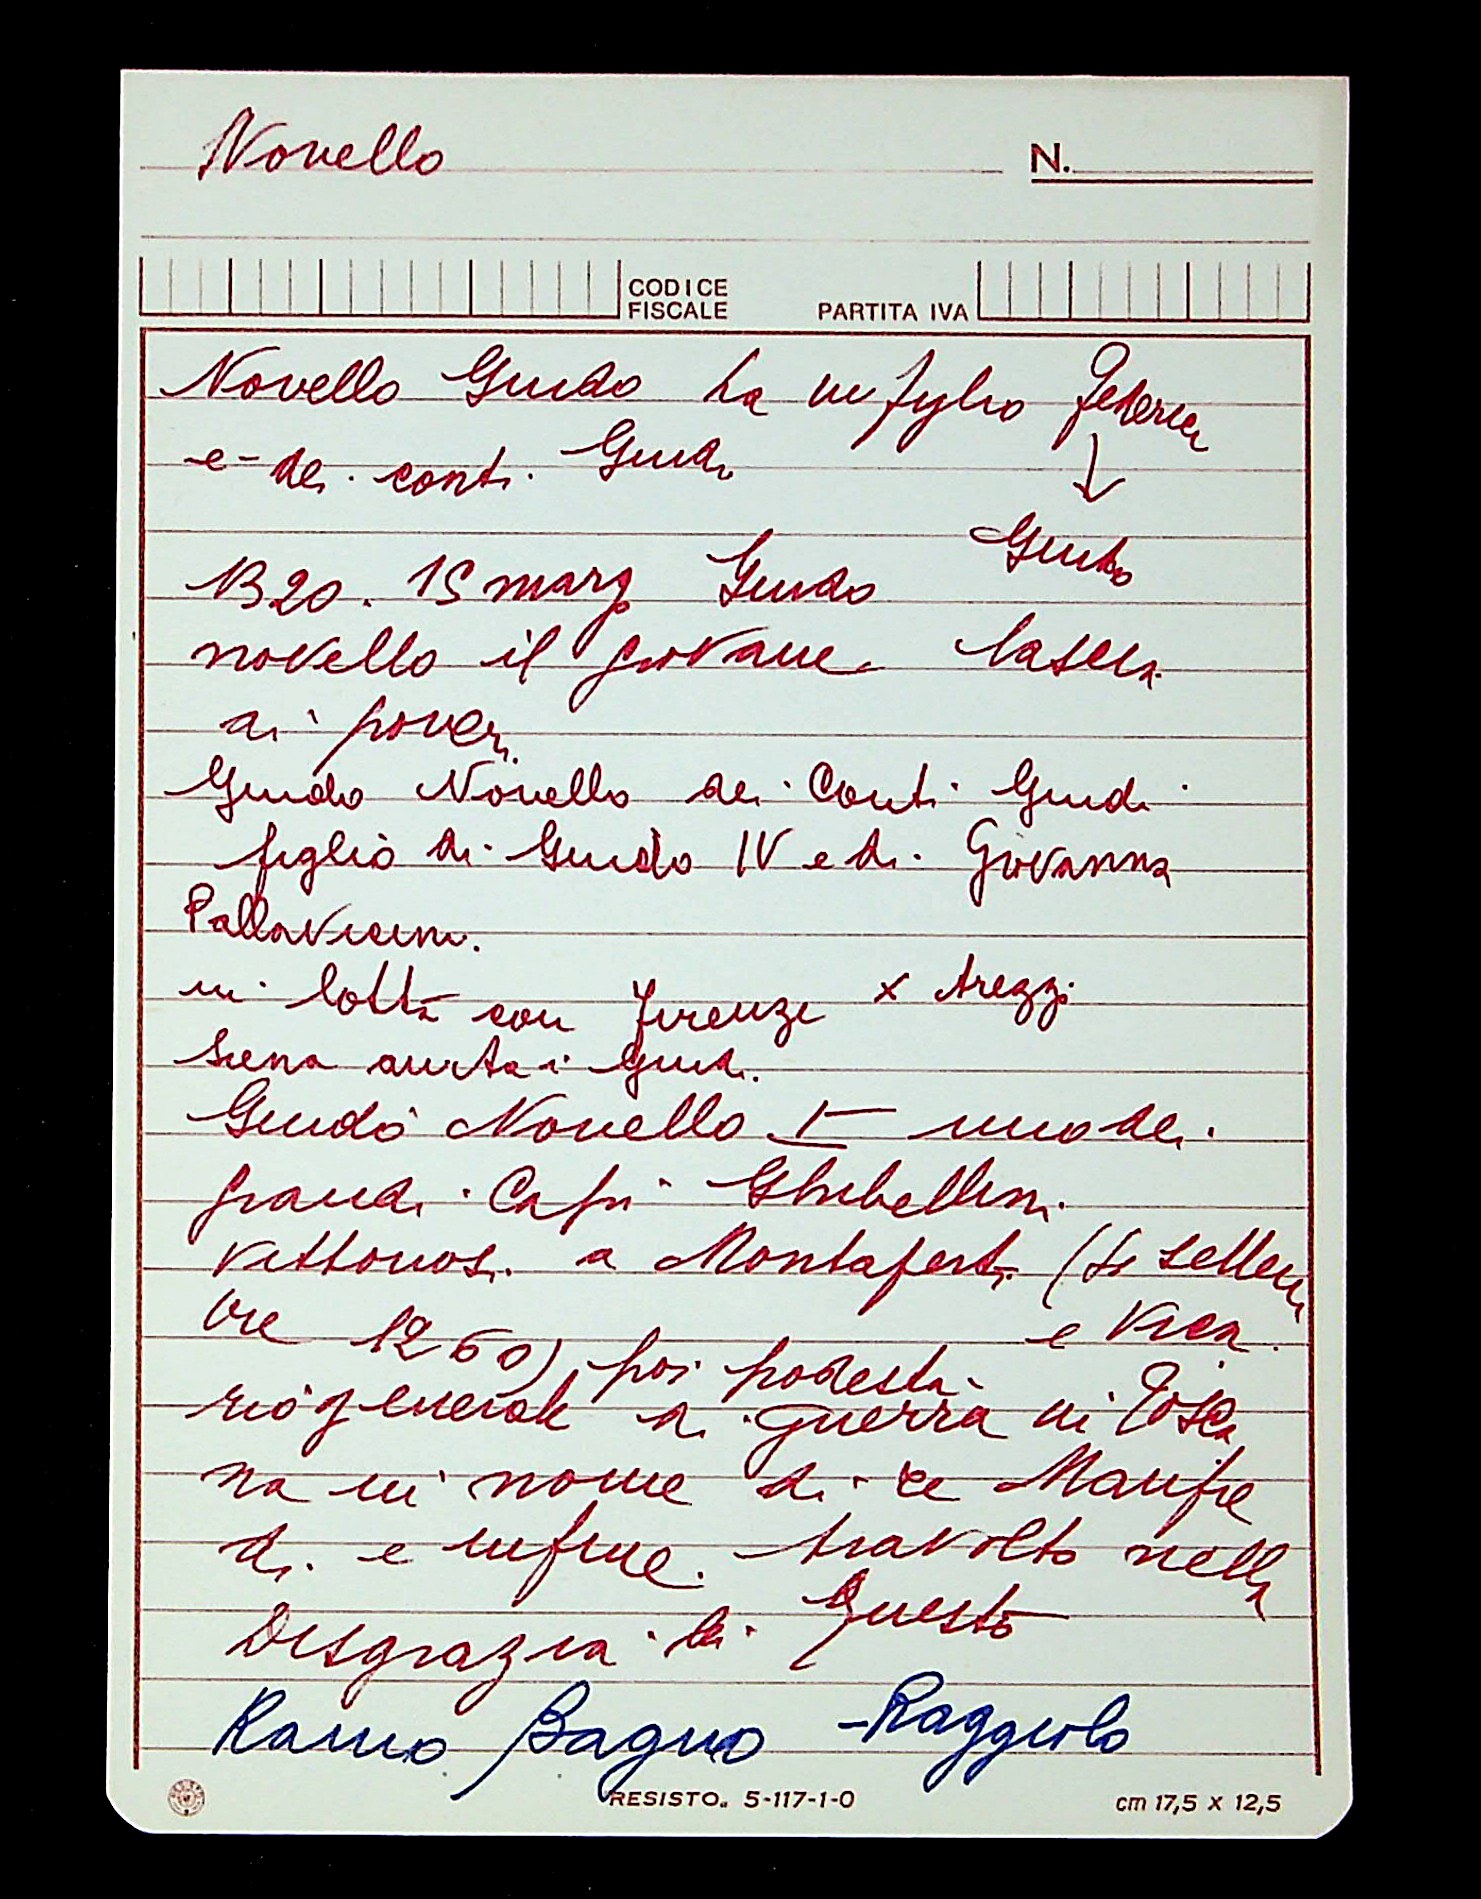 Novello
N.
CODICE
FISCALE
PARTITA IVA
Novello Guido ha un figlio Federico
e- dei conti Guidi
↓
Guido
1320. 15 marzo Guido
novello il giovane lascia
ai poveri
Guido Novello dei Conti Guidi
figlio di Guido IV e di Giovanna
Pallavicini.
in lotta con Firenze x Arezzo
Siena aiuta i Guidi.
Guido Novello I uno dei
grandi Capi Ghibellini
vittoriosi a Montaperti (4 settem
bre 1260) poi podestà e vica
rio generale di guerra in Tosca
na in nome di re Manfre
di e infine travolto nella
disgrazia di questo
Ramo Bagno - Raggiolo
RESISTO. 5-117-1-0
cm 17,5 x 12,5